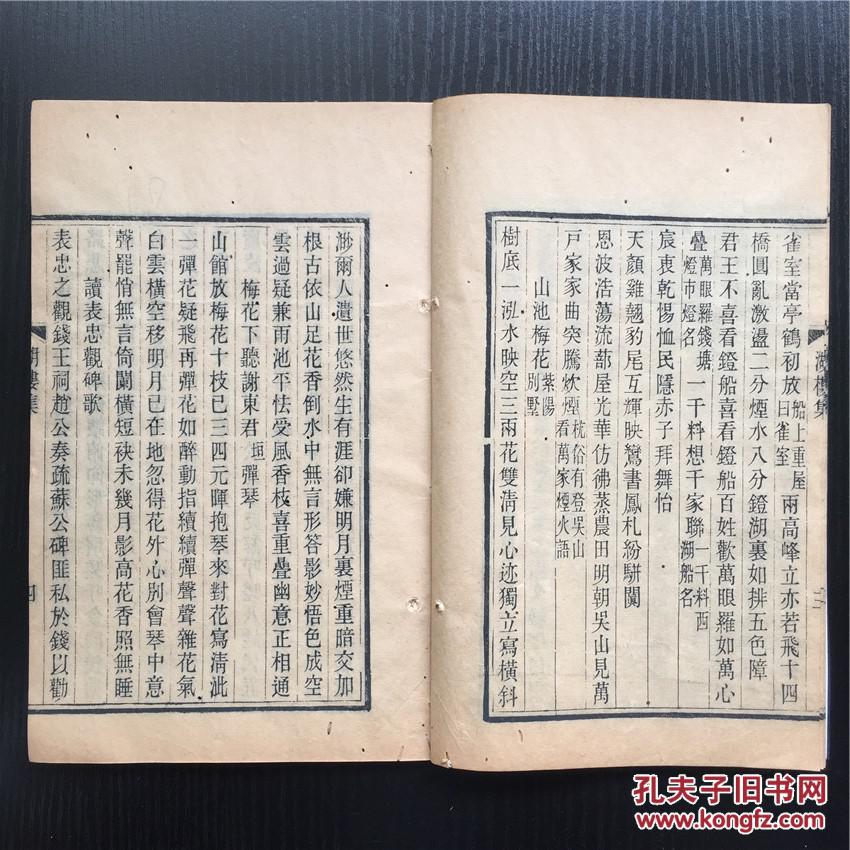 雀室當亭鶴初放船上重屋曰雀室兩高峰立亦若飛十四
橋圓亂激盪二分煙水八分鐙湖裏如排五色障
君王不喜看鐙船喜看鐙船百姓歡萬眼羅如萬心
疊萬眼羅錢塘燈市燈名一千料想千家聯一千料西湖船名
宸衷乾惕恤民隱赤子拜舞怡
天顏雞翹豹尾互輝映鸞書鳳札紛駢闐
恩波浩蕩流蔀屋光華仿彿蒸農田明朝吳山見萬
戶家家曲突騰炊煙杭俗有登吳山看萬家煙火語
山池梅花紫陽別墅
樹底一泓水映空三兩花雙清見心迹獨立寫橫斜
湖樓集
渺爾人遺世悠然生有涯卻嫌明月裏煙重暗交加
根古依山足花香倒水中無言形答影妙悟色成空
雲過疑兼雨池平怯受風香枝喜重疊幽意正相通
梅花下聽謝東君垣彈琴
山館放梅花十枝已三四元暉抱琴來對花寫清泚
一彈花疑飛再彈花如醉動指續續彈聲聲雜花氣
白雲橫空移明月已在地忽得花外心別會琴中意
聲罷悄無言倚闌橫短袂未幾月影高花香照無睡
讀表忠觀碑歌
表忠之觀錢王祠趙公奏疏蘇公碑匪私於錢以勸
湖樓集
四
孔夫子旧书网
www.kongfz.com